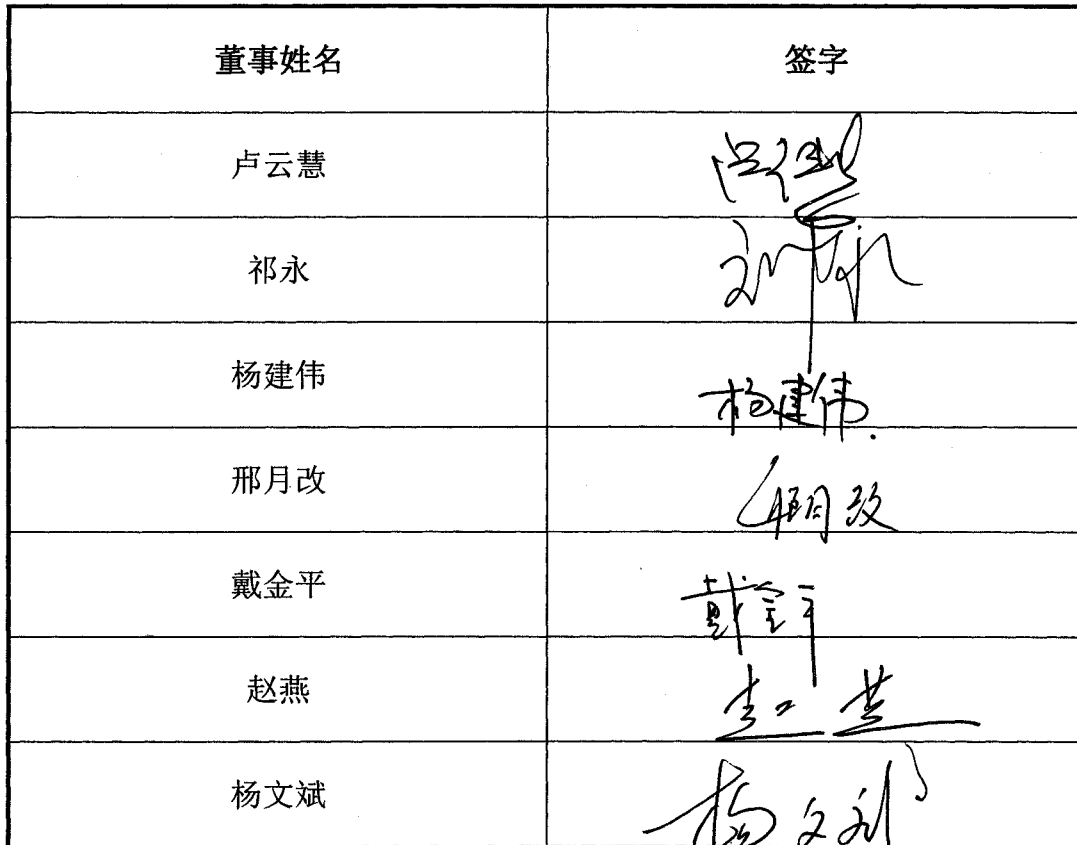 董事姓名 签字
卢云慧 卢云慧
祁永 祁永
杨建伟 杨建伟
邢月改 邢月改
戴金平 戴金平
赵燕 赵燕
杨文斌 杨文斌